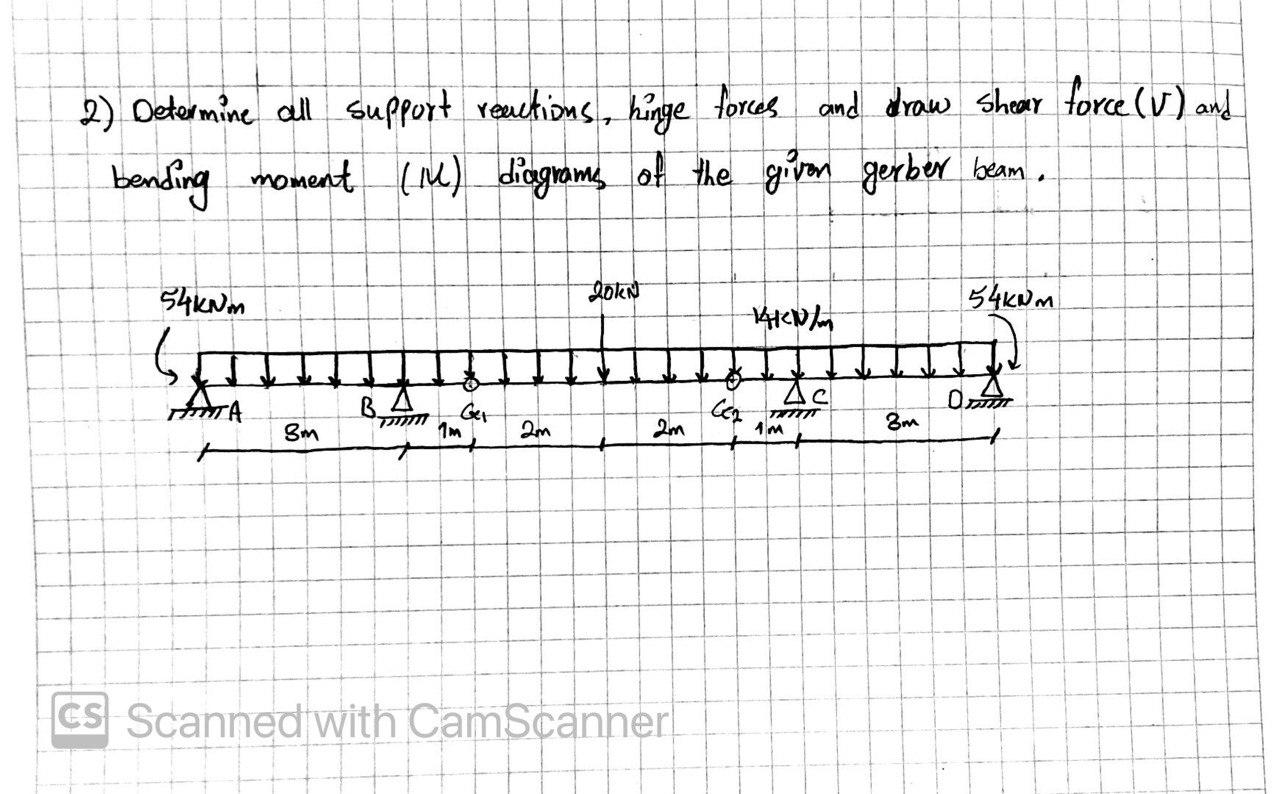 2) Determine all support reactions, hinge forces and draw shear force (V) and
bending moment (M) diagrams of the given gerber beam.
54kNm 20kN 14kN/m 54kNm
A B G1 G2 C D
3m 1m 2m 2m 1m 3m
CS Scanned with CamScanner